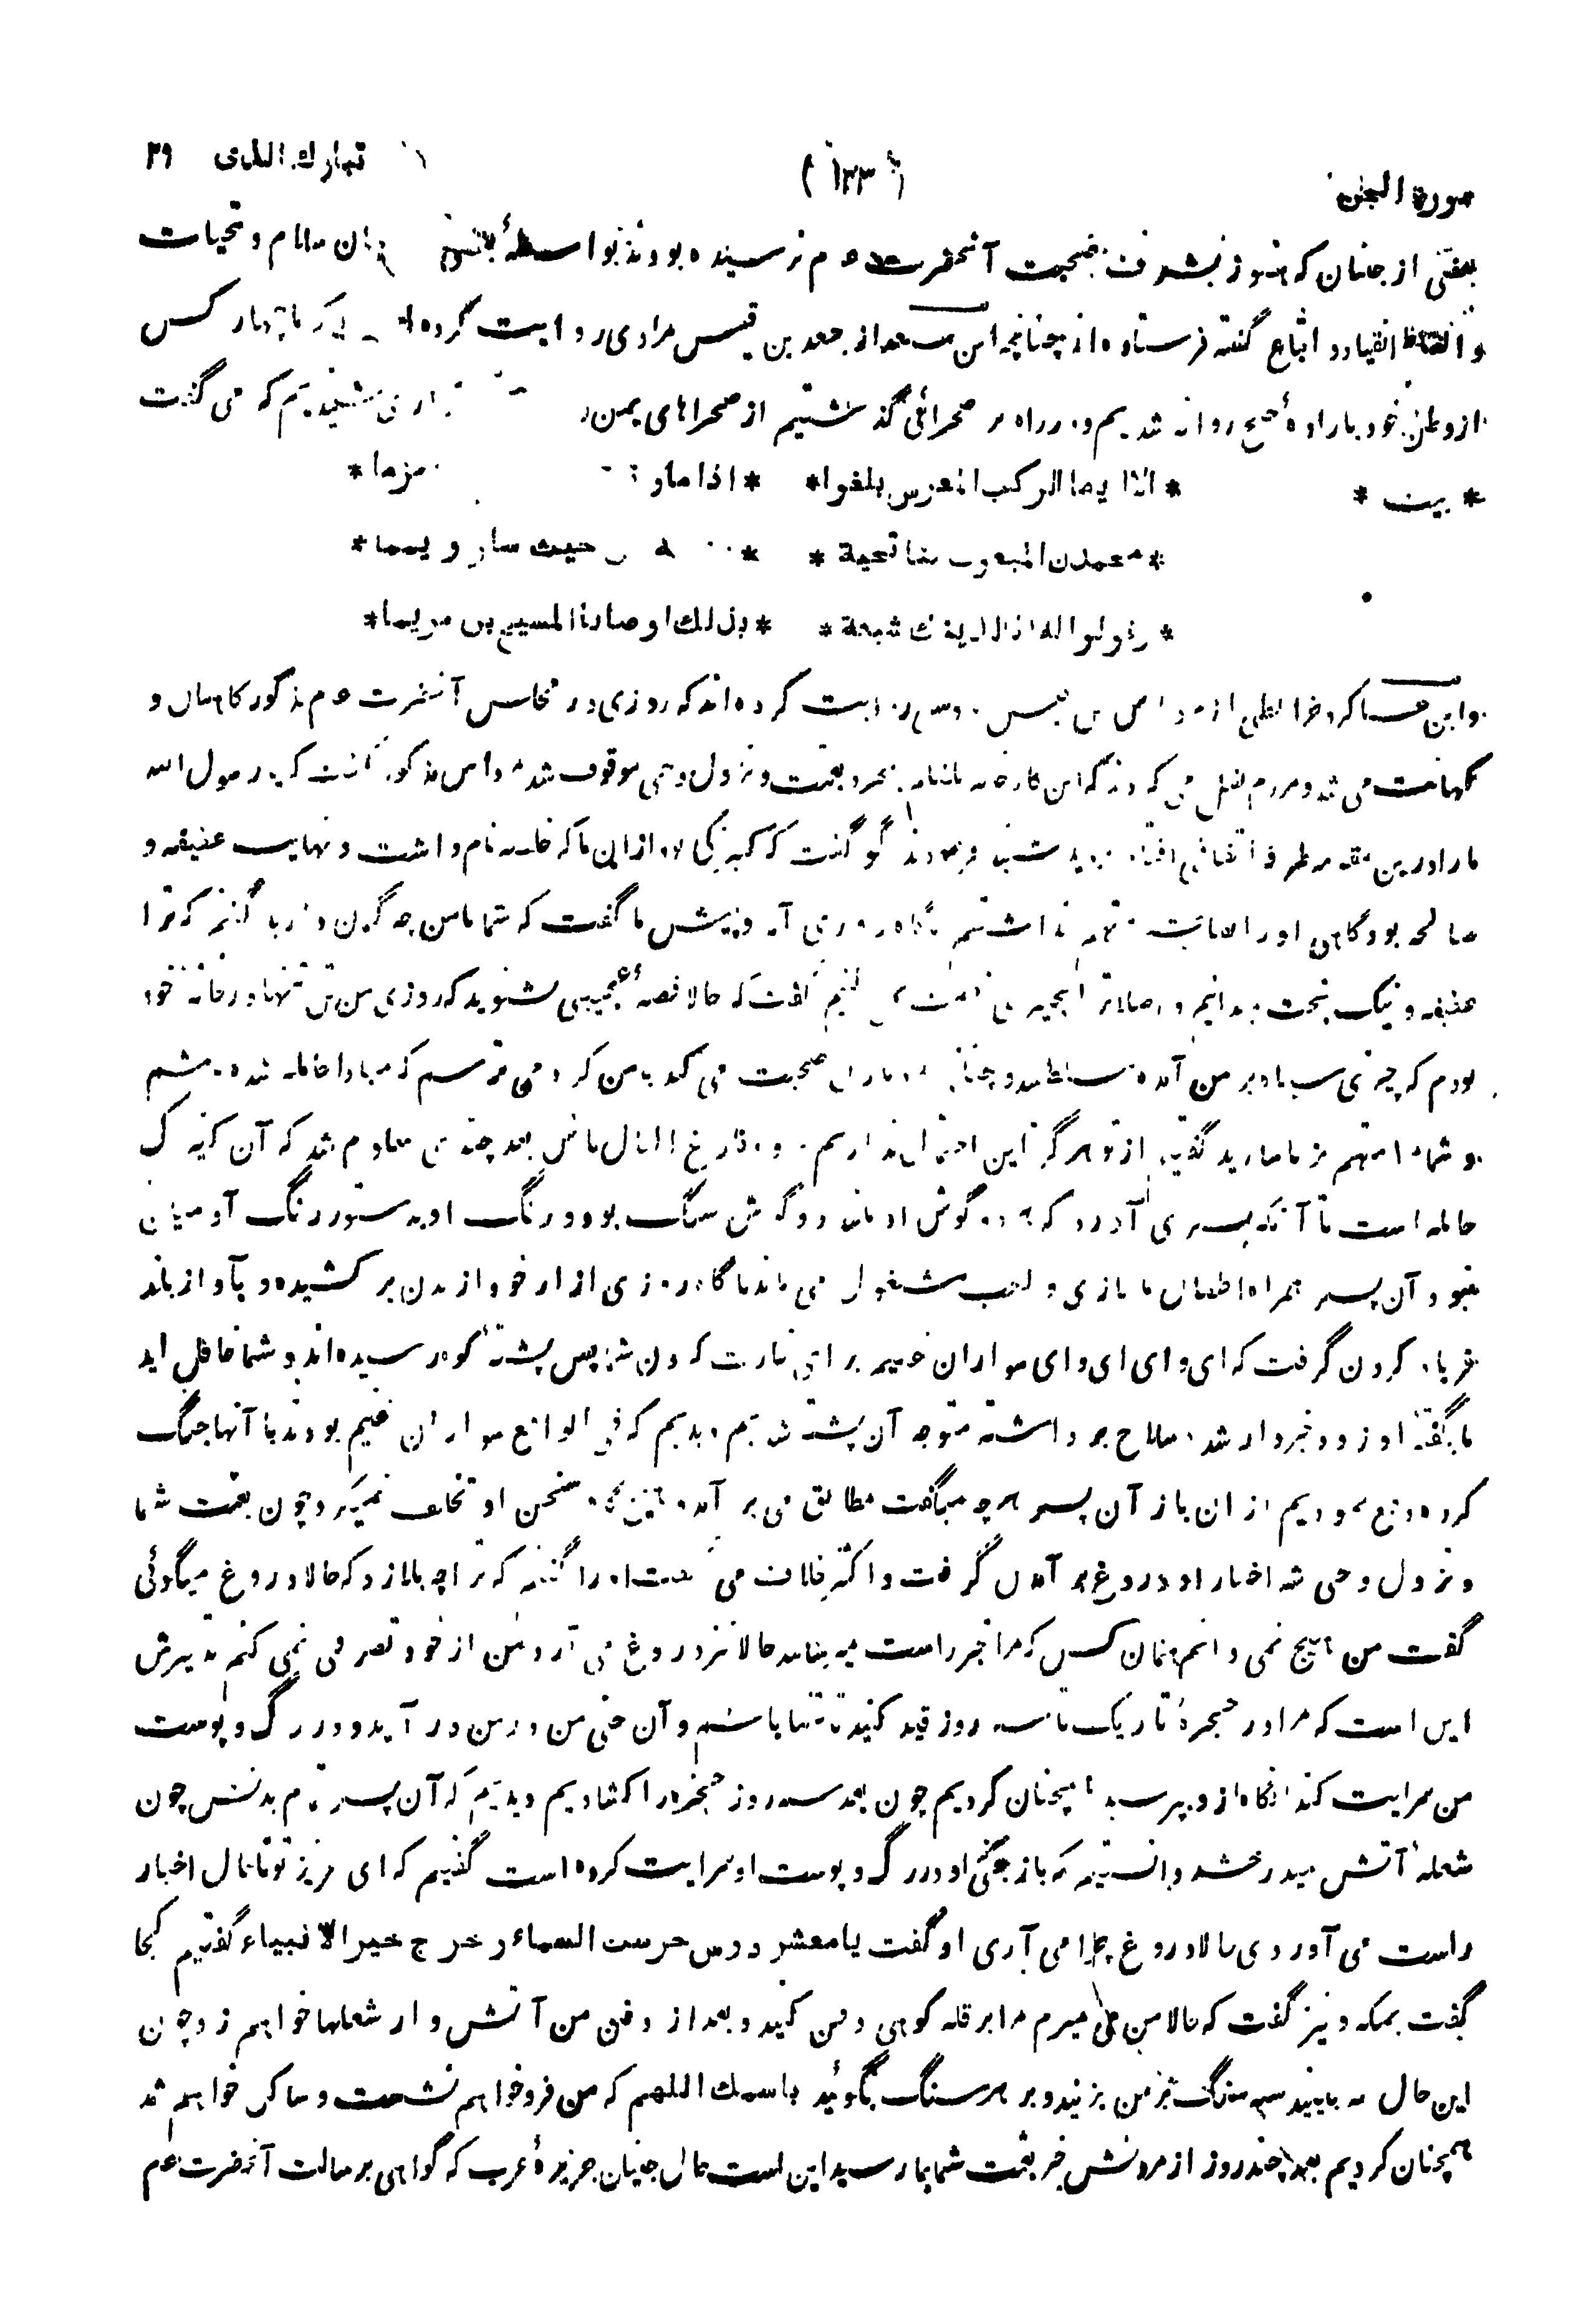 سورة الجن (١٣٣) تبارك الذى ٢٩
بعضی از جنیان که هنوز بشرف صحبت آنحضرت صلعم نرسیده بودند بواسطهٔ سلام و تحیات
و انقیاد و اتباع گفته فرستاده اند چنانچه ابن سعد از جعد بن قیس مرادی روایت کرده که ما چهار کس
از وطن خود بارادهٔ حج روانه شدیم و در راه بر صحرائی گذشتیم از صحراهای یمن شنیدیم که می گفت
* بیت * * الا ایها الركب المعرس بلغوا * * اذا ما و زمزما *
* محمدن المبعوث منا تحية * * حيث سار و يمما *
* وقولوا له انا لدينك شيعة * * بذلك اوصانا المسيح بن مريما *
وابن عساکر و خرائطی از مرداس بن قیس دوسی روایت کرده اند که روزی در مجلس آنحضرت صلعم مذکور کاهنان و
کهانت می شد و مردم نقل می کردند که این کارخانه بمجرد بعثت و نزول وحی موقوف شد مرداس مذکور گفت که یا رسول الله
ما را درین مقدمه طرفه اتفاقی افتاد فرمودند بگو گفت که کنیزکی بود از ان ما که خلصه نام داشت و نهایت عفیفه و
صالحه بود گاهی او را متهم نداشتیم ناگاه روزی آمد و پیش ما گفت که شما با من چه گمان دارید گفتیم که ترا
عفیفه و نیک بخت میدانیم گفت که حالا قصهٔ عجیبی بشنوید که روزی من تنها در خانه خود
بودم که چیزی سیاه بر من آمده صحبت می کند با من کرد می ترسم که مبادا حامله شده باشم
و شما مرا متهم نمایید گفتیم از تو هرگز این احتمال نداریم فارغ البال باش بعد چندی معلوم شد که آن کنیزک
حامله است تا آنکه پسری آورد که هر دو گوش او مانند دو گوش سگ بود و رنگ او بدستور رنگ آدمیان
نبود و آن پسر همراه اطفال ما بازی و لعب مشغول می ماند ناگاه روزی ازار خود از بدن بر کشیده و بآواز بلند
فریاد کردن گرفت که ای وای ای وای سواران غنیم برای غارت کردن شما پس پشتهٔ کوه رسیده اند و شما غافل اید
ما بگفتهٔ او زود خبردار شده سلاح برداشته متوجه آن پشته شدیم دیدیم که فی الواقع سواران غنیم بودند با آنها جنگ
کرده دفع نمودیم از ان باز آن پسر هر چه میگفت مطابق می برآمد سخن او تخلف نمیکرد چون بعثت شما
و نزول وحی شد اخبار او دروغ بر آمدن گرفت و اکثر خلاف می او را گفتند که ترا چه بلا زد که حالا دروغ میگوئی
گفت من هیچ نمی دانم همان کس که مرا خبر راست میرساند حالا نزد دروغ می آرد من از خود تصرفی نمی کنم تدبیرش
این است که مرا در حجرهٔ تاریک تا سه روز قید کنید تا تنها باشم و آن جنی من در من در آید و در رگ و پوست
من سرایت کند آنگاه از و بپرسید همچنان کردیم چون بعد سه روز حجره را کشادیم دیدیم که آن پسر تمام بدنش چون
شعلهٔ آتش میدرخشد دانستیم که باز جنی او در رگ و پوست او سرایت کرده است گفتیم که ای عزیز تو تا حال اخبار
راست می آوردی حالا دروغ چرا می آری او گفت یا معشر دوس حرست السماء و خرج خیر الانبیاء گفتیم کجا
گفت بمکه و نیز گفت که حالا من می میرم مرا بر قله کوهی دفن کنید و بعد از دفن من آتش وار شعلها خواهم زد چون
این حال مرا ببینید سه سنگ بر من بزنید و بر هر سنگ بگوئید باسمك اللهم که من فرو خواهم نشست و ساکن خواهم شد
همچنان کردیم بعد چند روز از مردنش خبر بعثت شما بما رسید این است حال جنیان جزیرهٔ عرب که گواهی بر رسالت آنحضرت صلعم